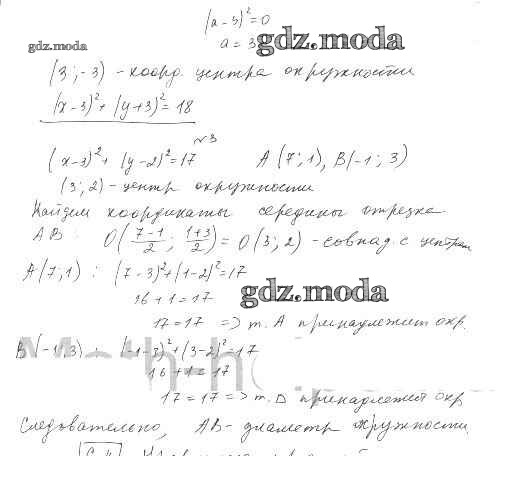 (a-3)²=0
a = 3
gdz.moda
gdz.moda
(3;-3) - коорд. центра окружности
(x-3)²+(y+3)²=18
№3
(x-3)²+(y-2)²=17 A(7;1), B(-1;3)
(3;2) - центр окружности
Найдем координаты середины отрезка
AB: O(7-1/2; 1+3/2) = O(3;2) - совпад. с центром
A(7;1): (7-3)²+(1-2)²=17
16+1=17
gdz.moda
17=17 => т. A принадлежит окр.
B(-1;3): (-1-3)²+(3-2)²=17
16+1=17
17=17 => т. B принадлежит окр
Следовательно, AB - диаметр окружности.